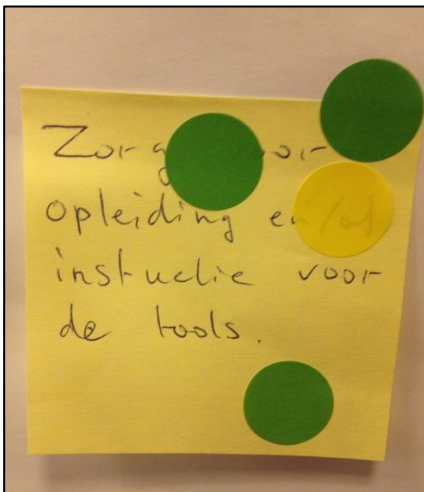 Zorg voor
opleiding en/of
instuctie voor
de tools.